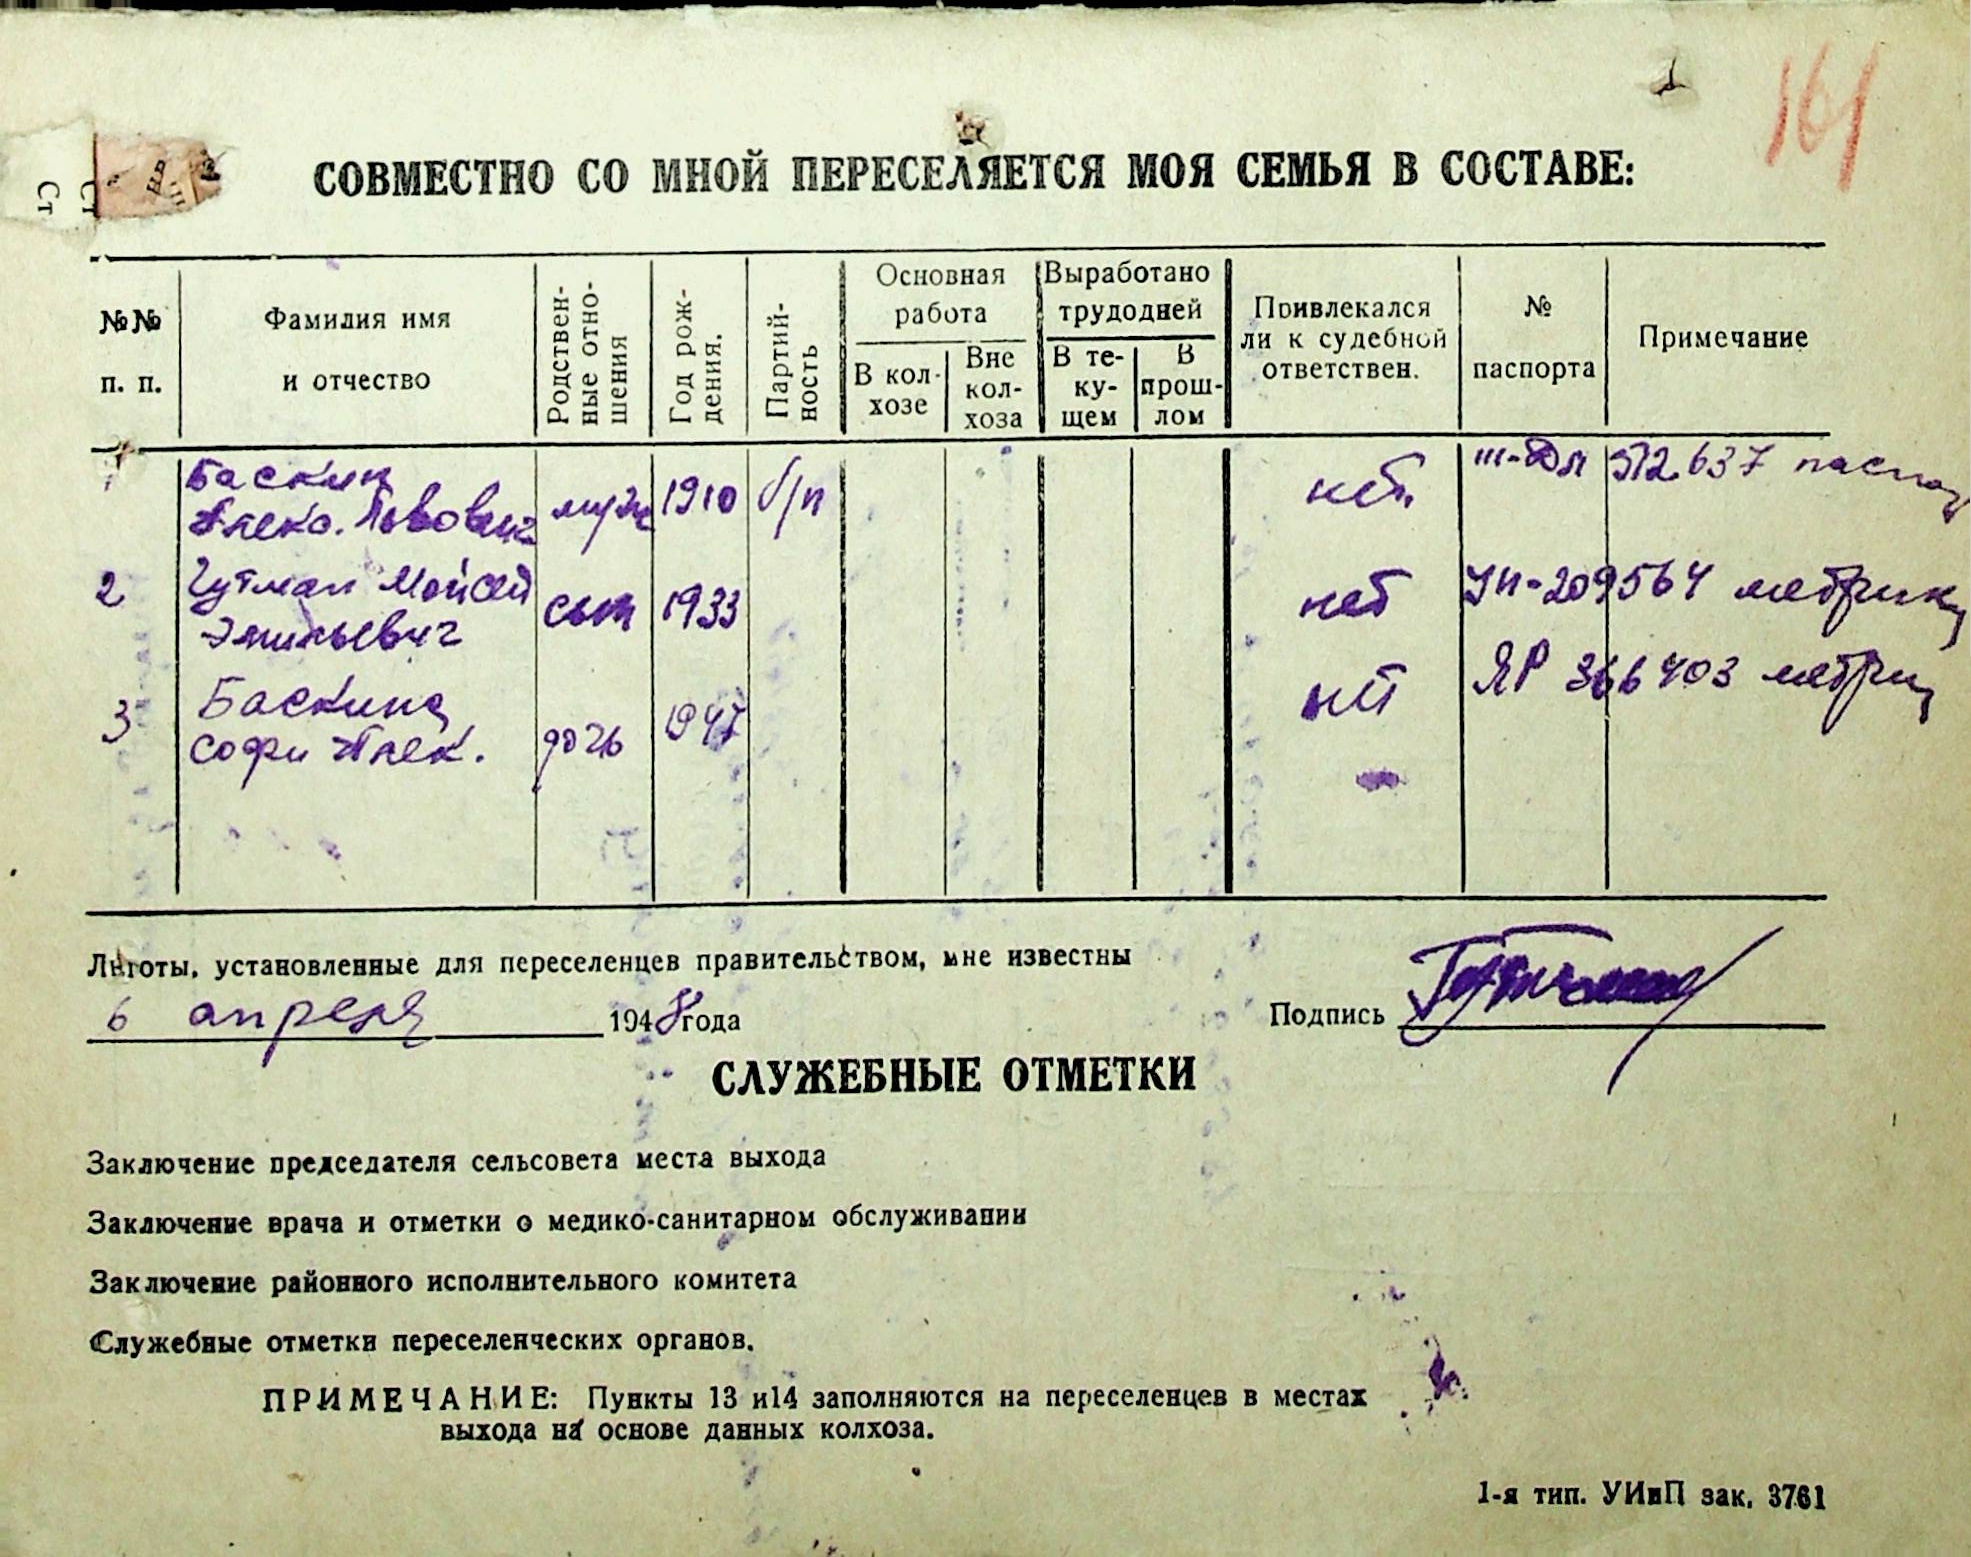 161
Ст
Ст
СОВМЕСТНО СО МНОЙ ПЕРЕСЕЛЯЕТСЯ МОЯ СЕМЬЯ В СОСТАВЕ:
№№ п. п.
Фамилия имя и отчество
Родствен-ные отно-шения
Год рож-дения.
Партий-ность
Основная работа
В кол-хозе
Вне кол-хоза
Выработано трудодней
В те-ку-щем
В прош-лом
Привлекался ли к судебной ответствен.
№ паспорта
Примечание
1 Баскин муж 1910 б/п нет III-ДМ 512637
Алекс. Львович
2 Гутман Моисей сын 1933 нет УИ-209564 метрика
Эмильевич
3 Баскина дочь 1947 нет ЯР 366403
Софи Алек.
Льготы, установленные для переселенцев правительством, мне известны
6 апреля 1948 года
Подпись Гутман
СЛУЖЕБНЫЕ ОТМЕТКИ
Заключение председателя сельсовета места выхода
Заключение врача и отметки о медико-санитарном обслуживании
Заключение районного исполнительного комитета
Служебные отметки переселенческих органов.
ПРИМЕЧАНИЕ: Пункты 13 и14 заполняются на переселенцев в местах
выхода на основе данных колхоза.
1-я тип. УИиП зак. 3761